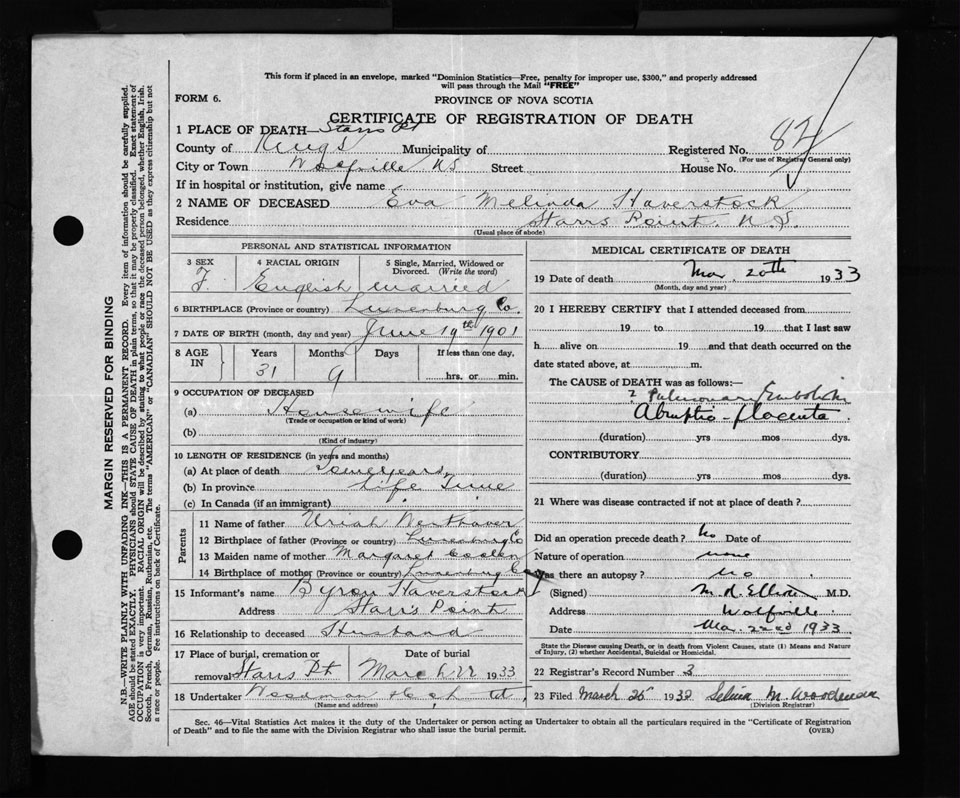 This form if placed in an envelope, marked "Dominion Statistics—Free, penalty for improper use, $300," and properly addressed
will pass through the Mail "FREE"
FORM 6.
PROVINCE OF NOVA SCOTIA
CERTIFICATE OF REGISTRATION OF DEATH
1 PLACE OF DEATH— Starrs Pt
County of Kings Municipality of Registered No. 82
(For use of Registrar General only)
City or Town Wolfville NS Street House No.
If in hospital or institution, give name
2 NAME OF DECEASED Eva Melinda Haverstock
Residence Starrs Point. N.S.
(Usual place of abode)
PERSONAL AND STATISTICAL INFORMATION
3 SEX 4 RACIAL ORIGIN 5 Single, Married, Widowed or
Divorced. (Write the word)
F. English married
6 BIRTHPLACE (Province or country) Lunenburg Co.
7 DATE OF BIRTH (month, day and year) June 19th 1901
8 AGE IN Years Months Days If less than one day,
31 9 hrs. or min.
9 OCCUPATION OF DECEASED
(a) Housewife
(Trade or occupation or kind of work)
(b)
(Kind of industry)
10 LENGTH OF RESIDENCE (in years and months)
(a) At place of death Some years
(b) In province Life Time
(c) In Canada (if an immigrant)
Parents
11 Name of father Uriah
12 Birthplace of father (Province or country) Lunenburg Co
13 Maiden name of mother Margaret
14 Birthplace of mother (Province or country) Lunenburg Co
15 Informant's name Byron Haverstock
Address Starr's Point
16 Relationship to deceased Husband
17 Place of burial, cremation or Date of burial
removal Starrs Pt March 22 1933
18 Undertaker Woodman
(Name and address)
MEDICAL CERTIFICATE OF DEATH
19 Date of death Mar 20th 1933
(Month, day and year)
20 I HEREBY CERTIFY that I attended deceased from
19 to 19 that I last saw
h alive on 19 and that death occurred on the
date stated above, at m.
The CAUSE of DEATH was as follows:—
? Pulmonary Embolism
Abruptio-placenta
(duration) yrs mos dys.
CONTRIBUTORY
(duration) yrs mos dys.
21 Where was disease contracted if not at place of death?
Did an operation precede death? No Date of
Nature of operation none
Was there an autopsy? No
(Signed) M. R. Elliott M.D.
Address Wolfville
Date Mar. 22nd 1933
State the Disease causing Death, or in death from Violent Causes, state (1) Means and Nature
of Injury, (2) whether Accidental, Suicidal or Homicidal.
22 Registrar's Record Number 3
23 Filed March 25 1933 Selina M. Woodman
(Division Registrar)
Sec. 46—Vital Statistics Act makes it the duty of the Undertaker or person acting as Undertaker to obtain all the particulars required in the "Certificate of Registration
of Death" and to file the same with the Division Registrar who shall issue the burial permit.
(OVER)
MARGIN RESERVED FOR BINDING
N.B.—WRITE PLAINLY WITH UNFADING INK—THIS IS A PERMANENT RECORD. Every item of information should be carefully supplied.
AGE should be stated EXACTLY. PHYSICIANS should STATE CAUSE OF DEATH in plain terms, so that it may be properly classified. Exact statement of
OCCUPATION is very important. RACIAL ORIGIN will be described by stating to what people or race the deceased person belonged, whether English, Irish,
Scotch, French, German, Russian, Ruthenian, etc. The terms "AMERICAN" or "CANADIAN" SHOULD NOT BE USED as they express citizenship but not
a race or people. Fee instructions on back of Certificate.